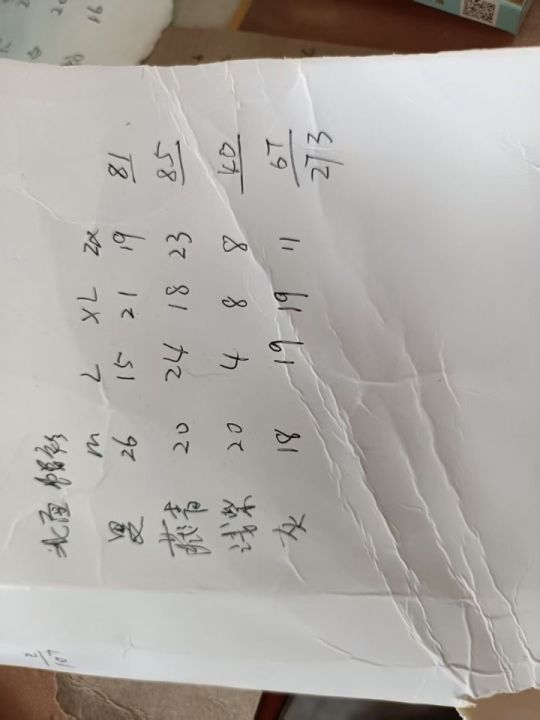 m L XL 2X
26 15 21 19 81
藏青 20 24 18 23 85
浅紫 20 4 8 8 40
灰 18 19 19 11 67
273